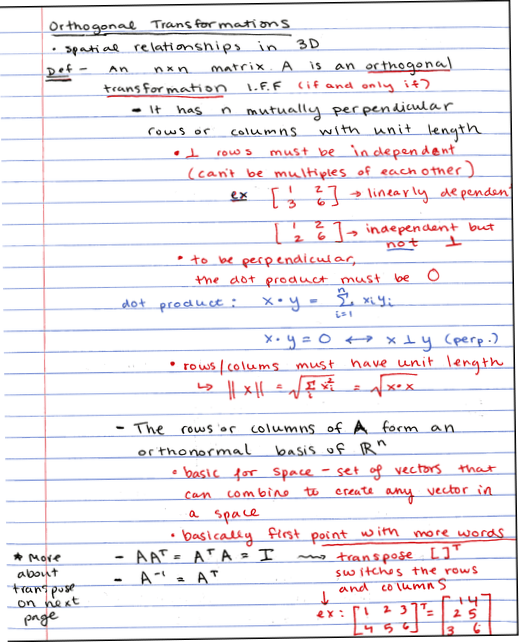 Orthogonal Transformations
• spatial relationships in 3D
Def - An n×n matrix A is an orthogonal
transformation I.F.F (if and only if)
- It has n mutually perpendicular
rows or columns with unit length
• ⊥ rows must be independent
(can't be multiples of each other)
ex [1 2
3 6] → linearly dependent
[1 2
2 6] → independent but
not ⊥
• to be perpendicular,
the dot product must be 0
dot product: x • y = n Σ i=1 xᵢyᵢ
x • y = 0 ↔ x ⊥ y (perp.)
• rows/colums must have unit length
↳ ||x|| = √(Σᵢ xᵢ²) = √(x•x)
- The rows or columns of A form an
orthonormal basis of ℝⁿ
• basic for space - set of vectors that
can combine to create any vector in
a space
• basically first point with more words
- AAᵀ = AᵀA = I ⟿ transpose [ ]ᵀ
switches the rows
and columns
- A⁻¹ = Aᵀ
* More
about
transpose
on next
page
↓
ex: [1 2 3
4 5 6]ᵀ = [1 4
2 5
3 6]